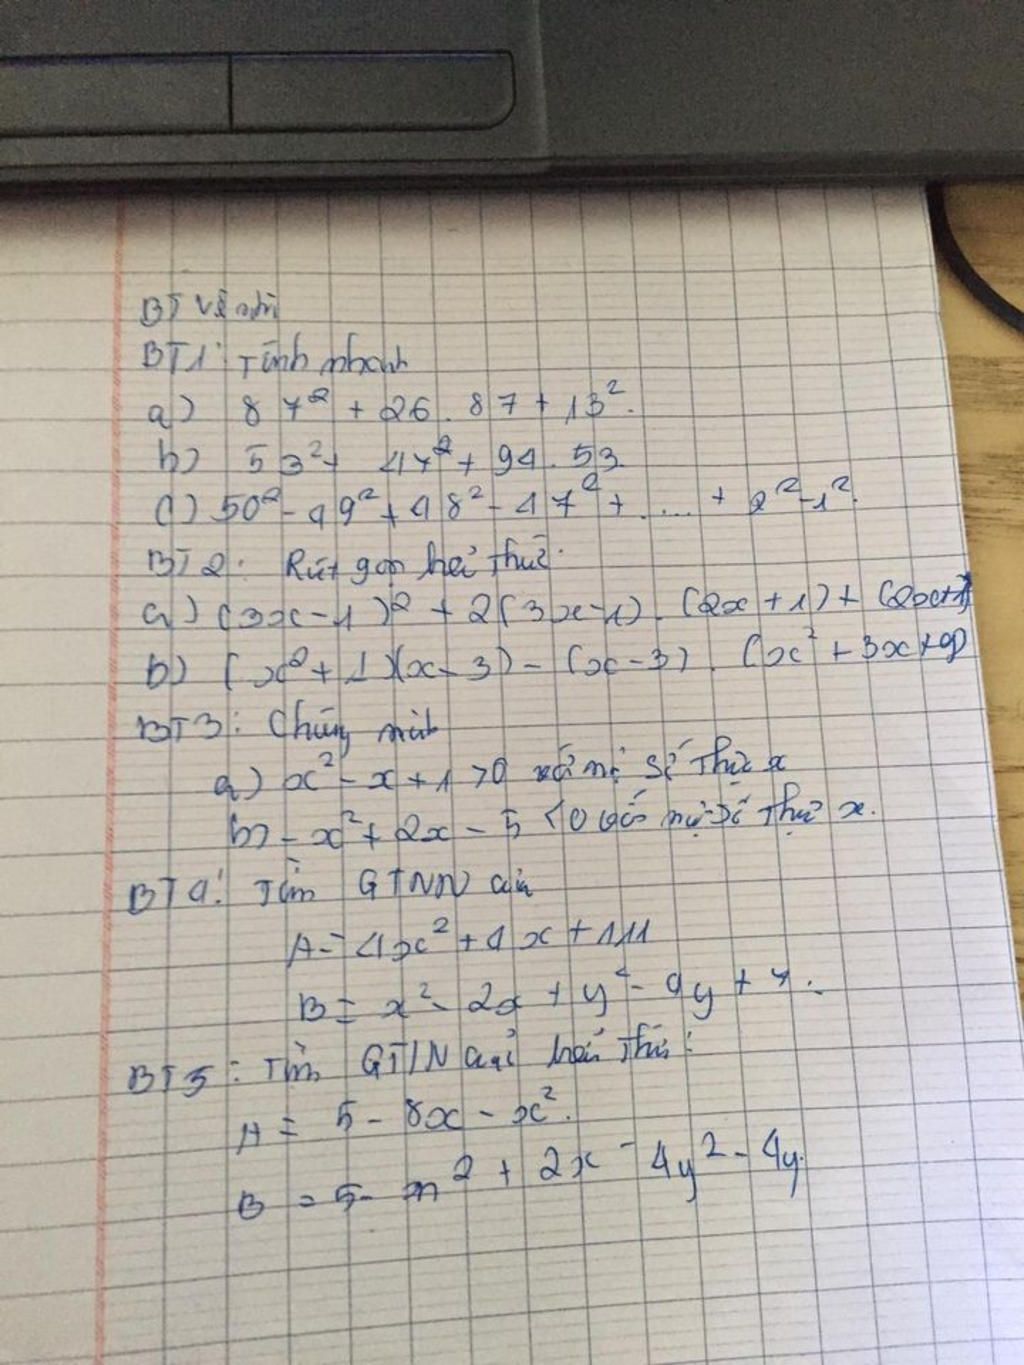 BT Về nhà
BT1: Tính nhanh
a) 87² + 26 . 87 + 13².
b) 53² + 47² + 94 . 53
c) 50² - 49² + 48² - 47² + .... + 2² - 1².
BT2: Rút gọn biểu thức:
a) (3x - 1)² + 2(3x - 1) . (2x + 1) + (2x + 1)
b) (x² + 1)(x - 3) - (x - 3) . (x² + 3x + 9)
BT3: Chứng minh
a) x² - x + 1 > 0 với mọi số thực x
b) - x² + 2x - 5 < 0 với mọi số thực x.
BT4: Tìm GTNN của
A = 4x² + 4x + 11
B = x² - 2x + y² - 4y + 7.
BT5: Tìm GTLN của biểu thức:
A = 5 - 8x - x².
B = 5 - x² + 2x - 4y² - 4y.